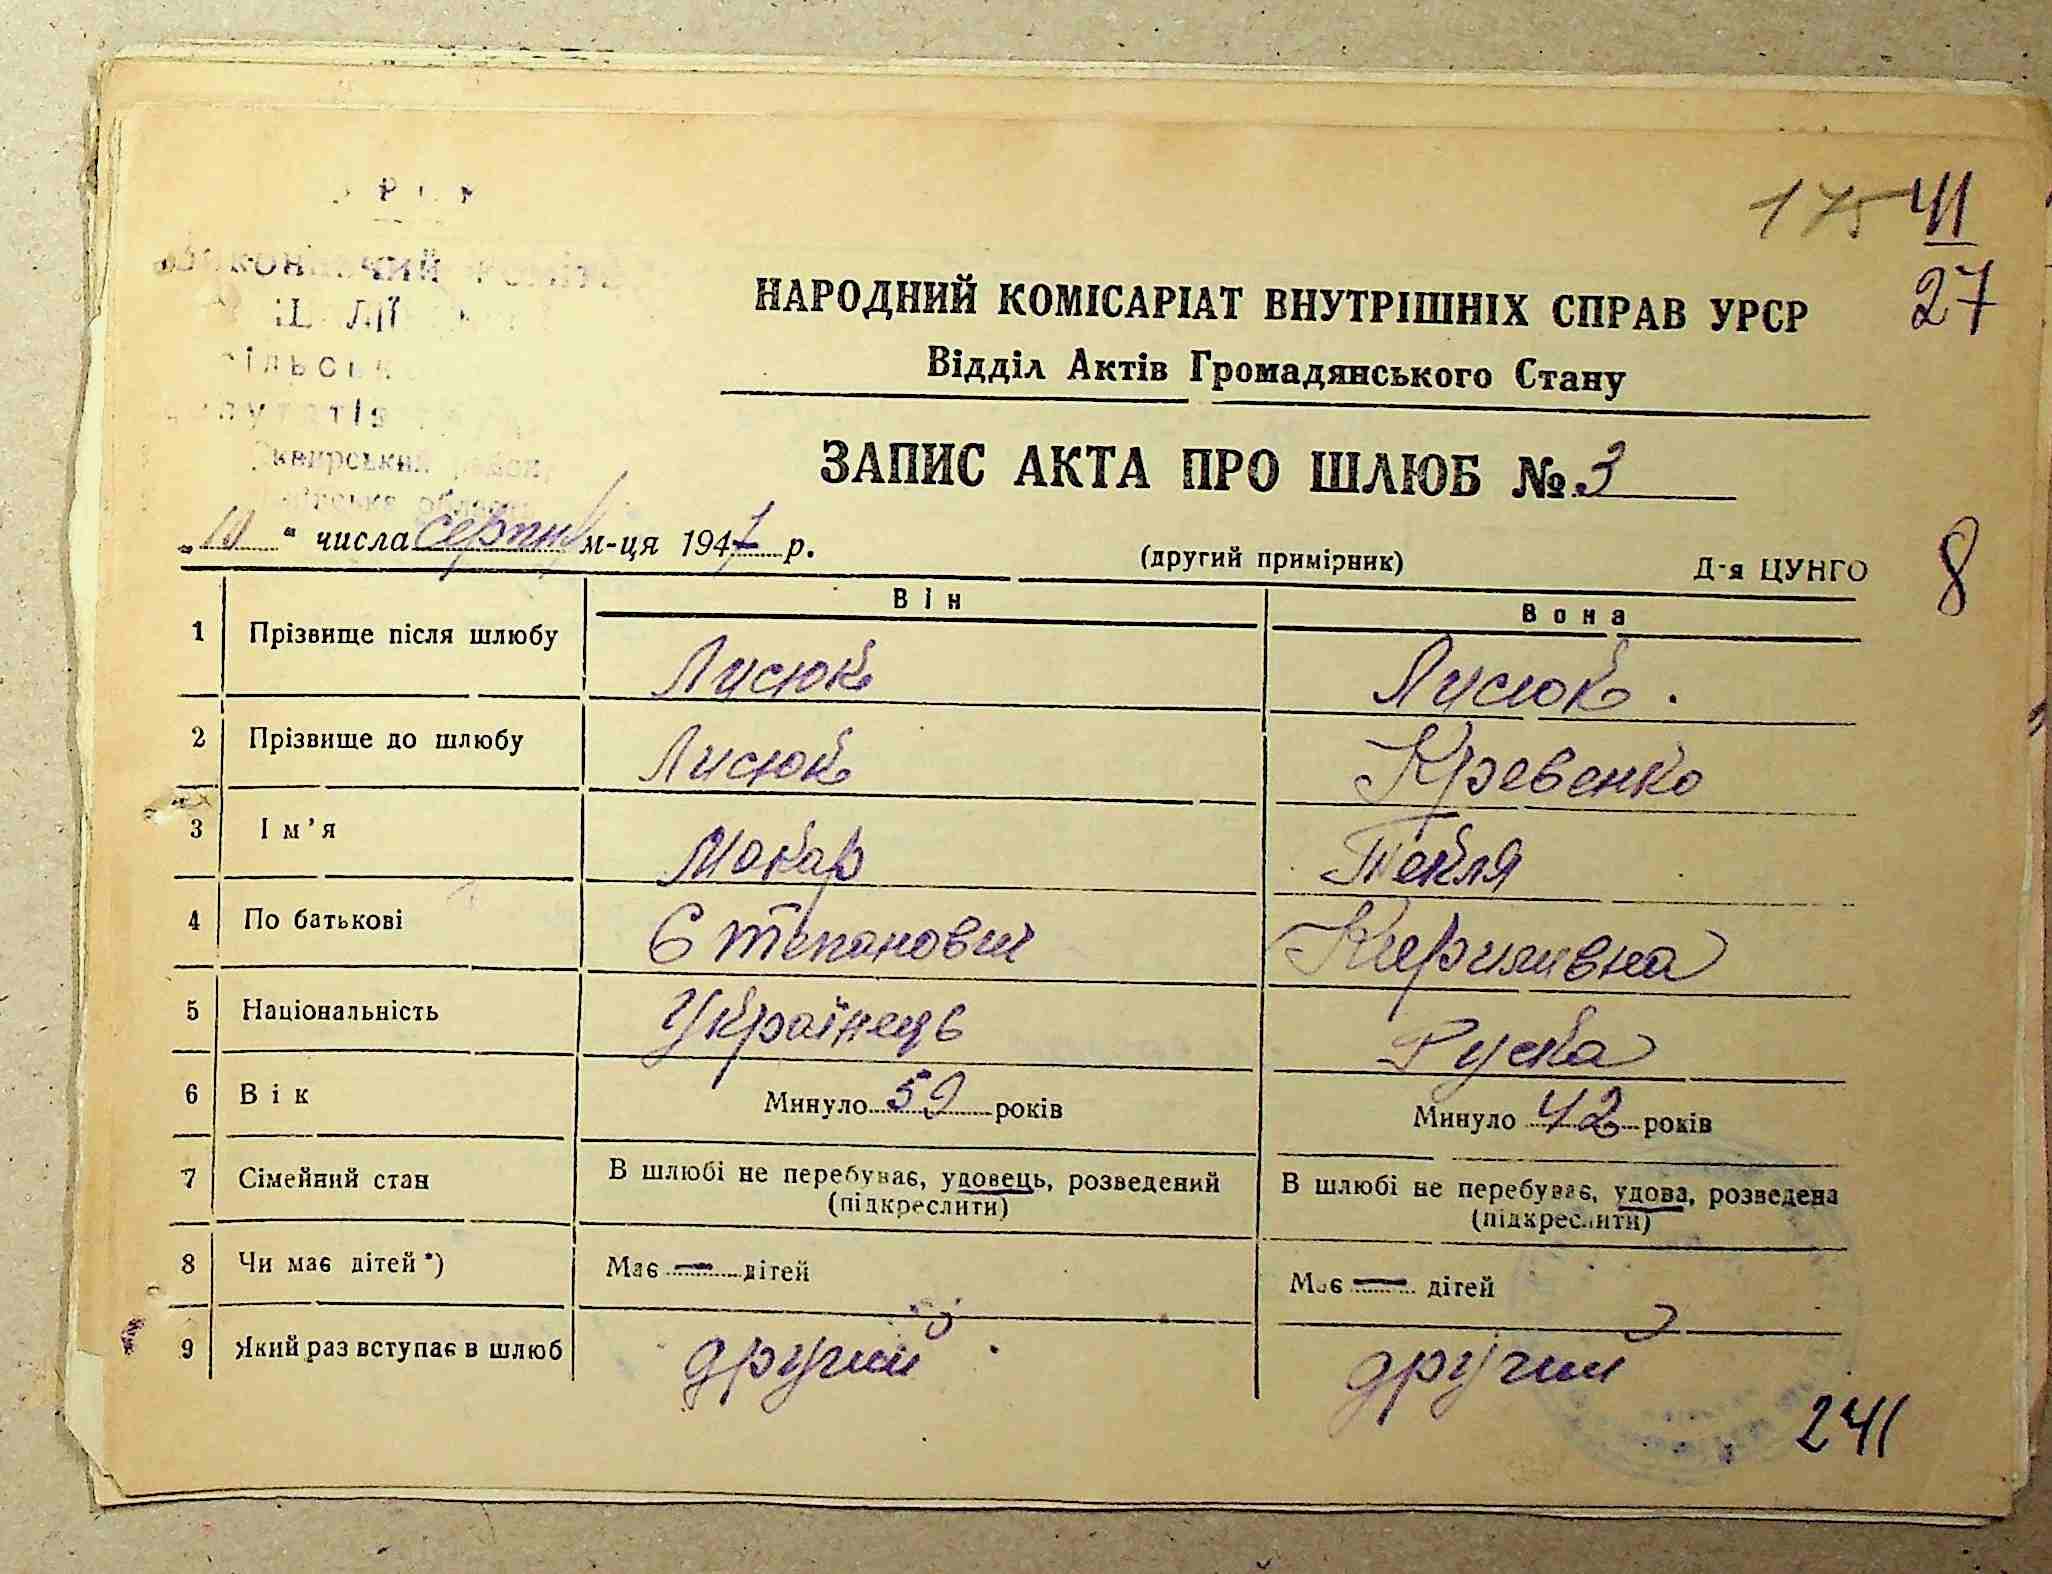 175 41
27
НАРОДНИЙ КОМІСАРІАТ ВНУТРІШНІХ СПРАВ УРСР
Відділ Актів Громадянського Стану
Сквирський район
ЗАПИС АКТА ПРО ШЛЮБ № 3
„10“ числа серпня м-ця 1947 р.
(другий примірник)
Д-я ЦУНГО
8
Він Вона
1 Прізвище після шлюбу Лисюк Лисюк.
2 Прізвище до шлюбу Лисюк Кревенко
3 Ім'я Макар Текля
4 По батькові Степанович Киримивна
5 Національність Українець Руска
6 Вік Минуло 59 років Минуло 42 років
7 Сімейний стан В шлюбі не перебуває, удовець, розведений В шлюбі не перебуває, удова, розведена
(підкреслити) (підкреслити)
8 Чи має дітей*) Має — дітей Має — дітей
9 Який раз вступає в шлюб другий другий
241